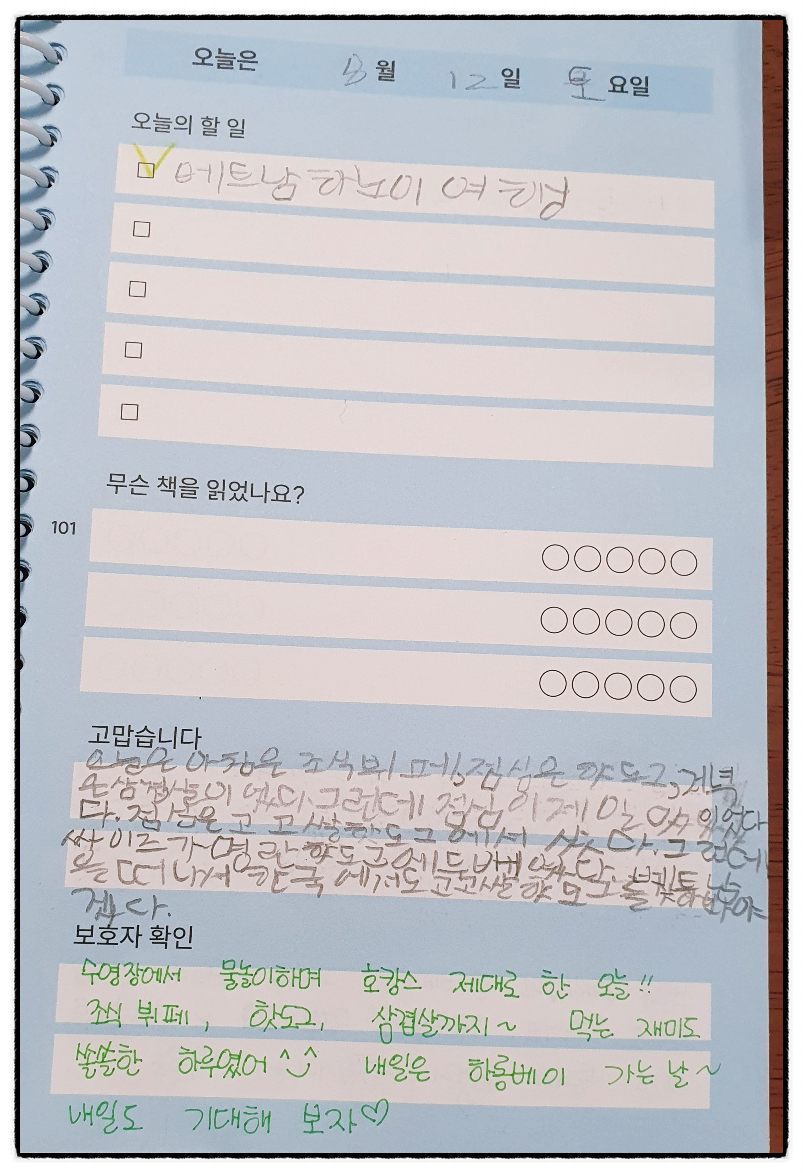 오늘은 8월 12일 토요일
오늘의 할 일
베트남 하노이 여행
무슨 책을 읽었나요?
101
고맙습니다
오늘은 아침은 조식뷔페, 점심은 핫도그, 저녁
은 삼겹살이 었다. 그런데 점심이 제일 맛있었다
다. 점심은 고고쌀핫도그에서 샀다. 그런데
싸이즈가 명란핫도그에 두배였다. 베트남
을 떠나서 한국에서도 고고쌀핫도그를 찾아봐야
겠다.
보호자 확인
수영장에서 물놀이하며 호캉스 제대로 한 오늘!!
조식 뷔페, 핫도그, 삼겹살까지~ 먹는 재미도
쏠쏠한 하루였어^^ 내일은 하롱베이 가는 날~
내일도 기대해 보자♡